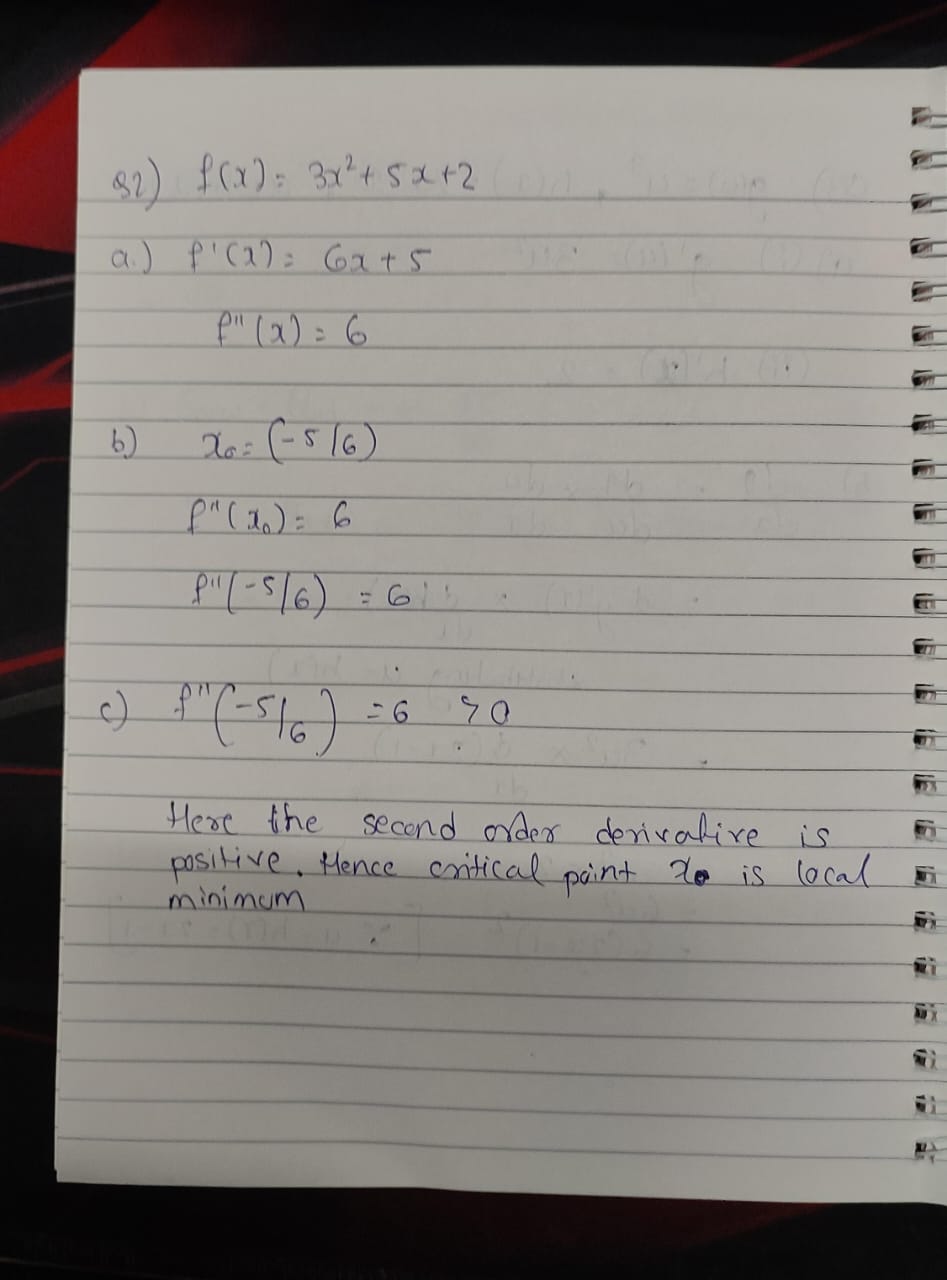 Q2) f(x) = 3x² + 5x + 2
a.) f'(x) = 6x + 5
f"(x) = 6
b) x₀ = (-5/6)
f"(x₀) = 6
f"(-5/6) = 6
c) f"(-5/6) = 6 > 0
Here the second order derivative is
positive. Hence critical point x₀ is local
minimum